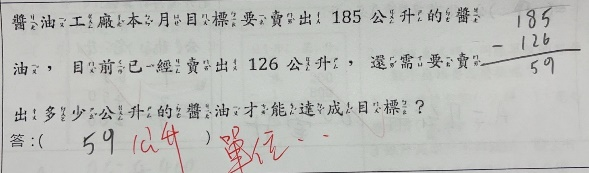 醬油工廠本月目標要賣出 185 公升的醬
油，目前已經賣出 126 公升，還需要賣
出多少公升的醬油才能達成目標？
答：( 59 公升 ) 單位..
185
- 126
59